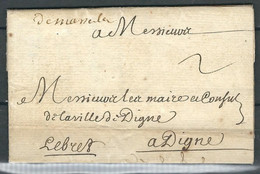 de marseille
a Messieurs
2
a Messieurs les maire et Consuls
de la ville de Digne
Lebret
a Digne